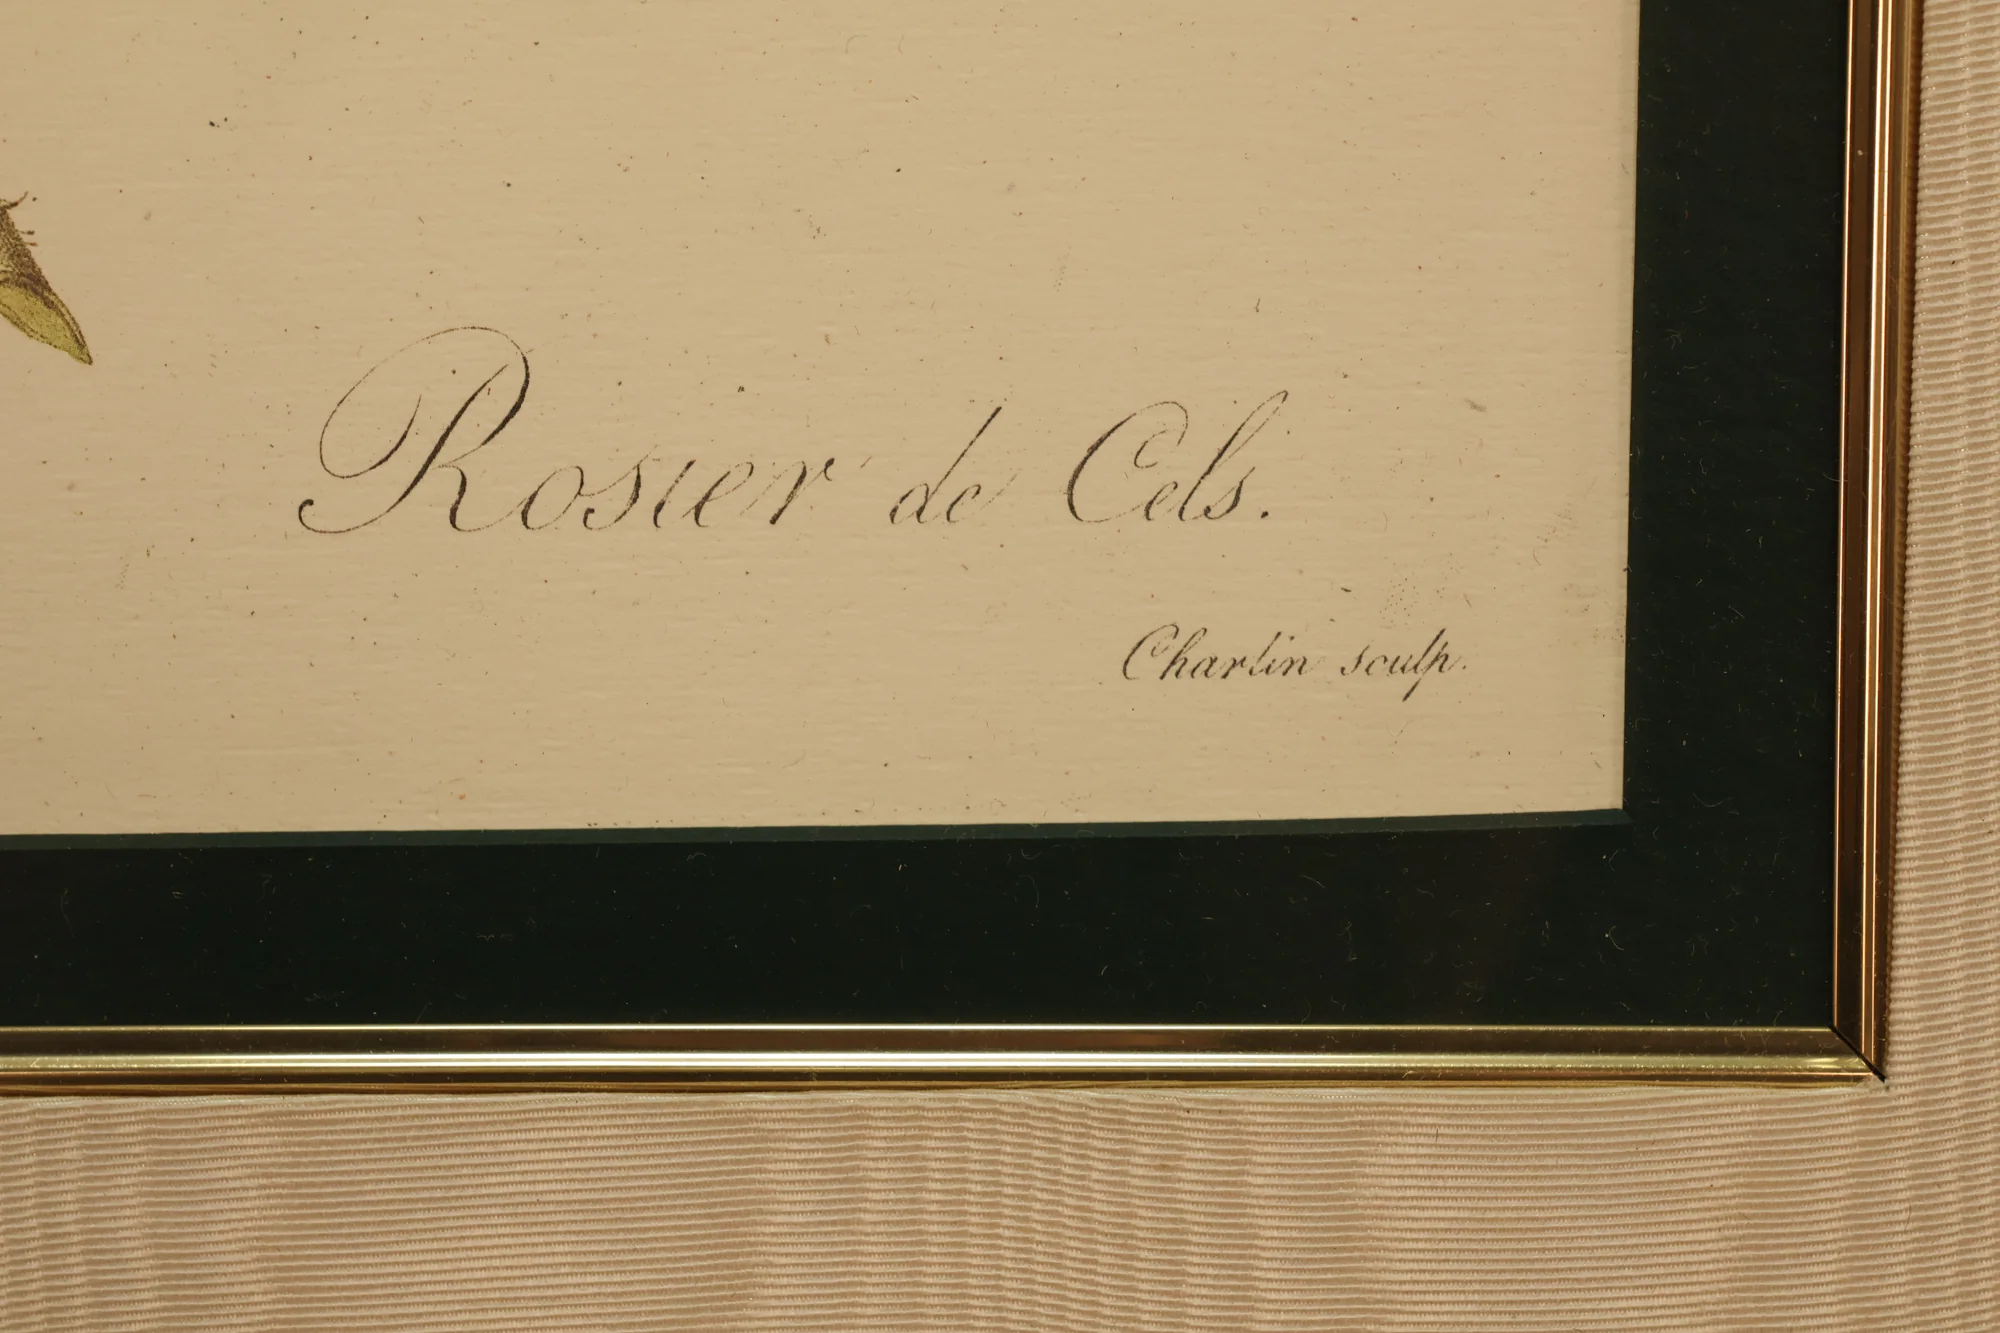 Rosier de Cels.
Charlin sculp.